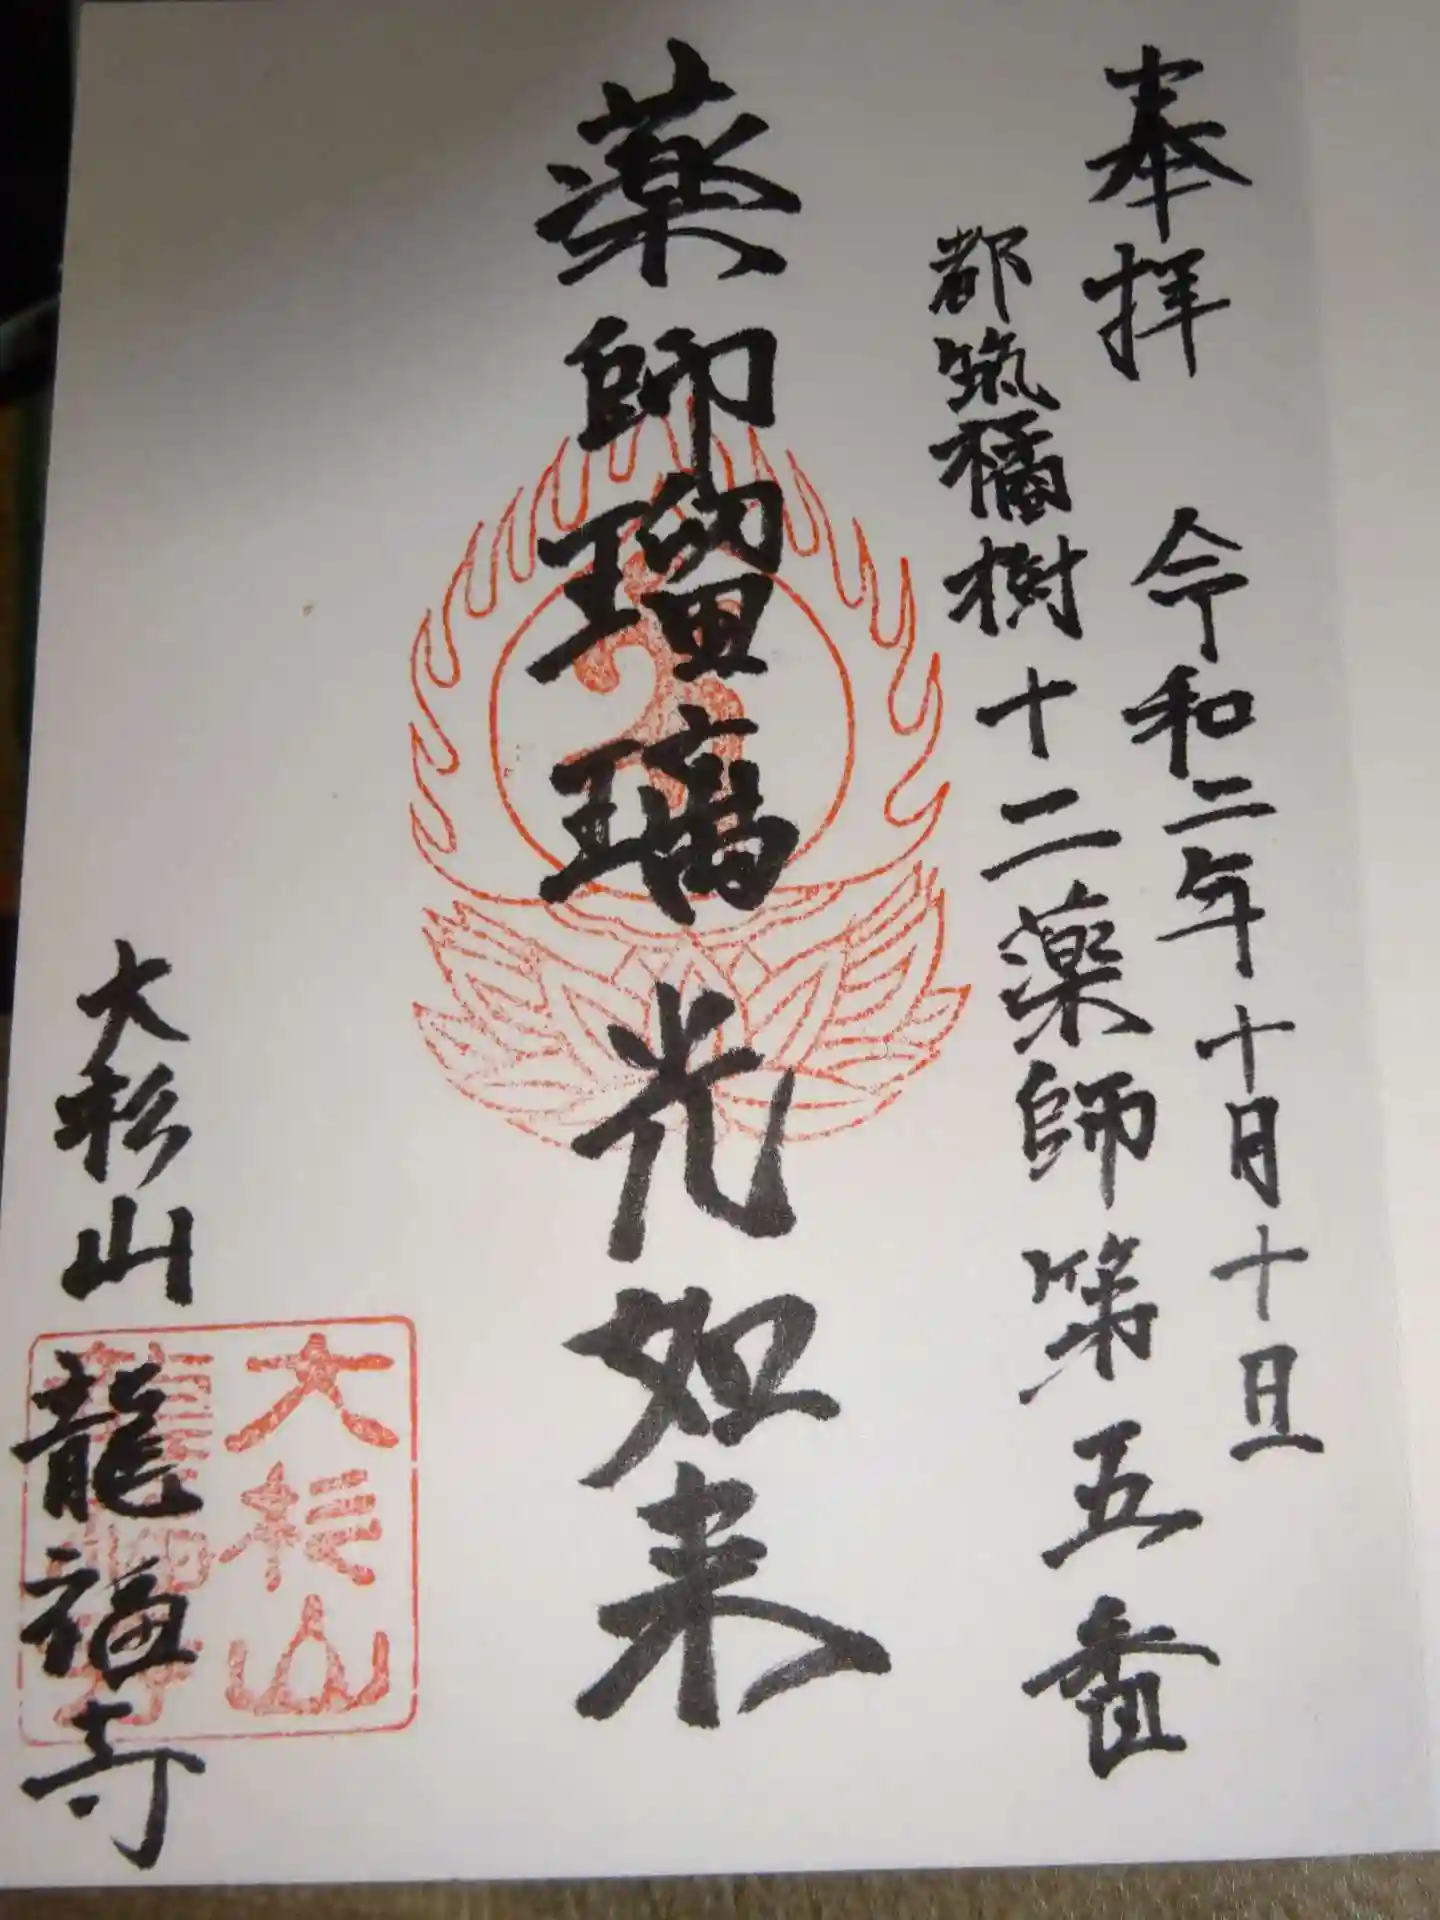 奉拝 令和二年十月十日
都筑橘樹十二薬師第五番
薬師瑠璃光如来
大杉山龍福寺
大杉山